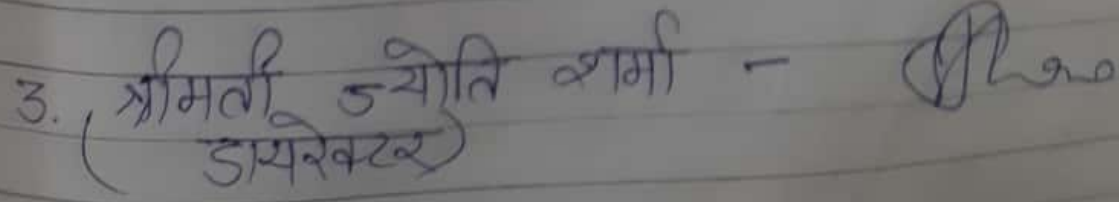 3. श्रीमती ज्योति शर्मा -
(डायरेक्टर)